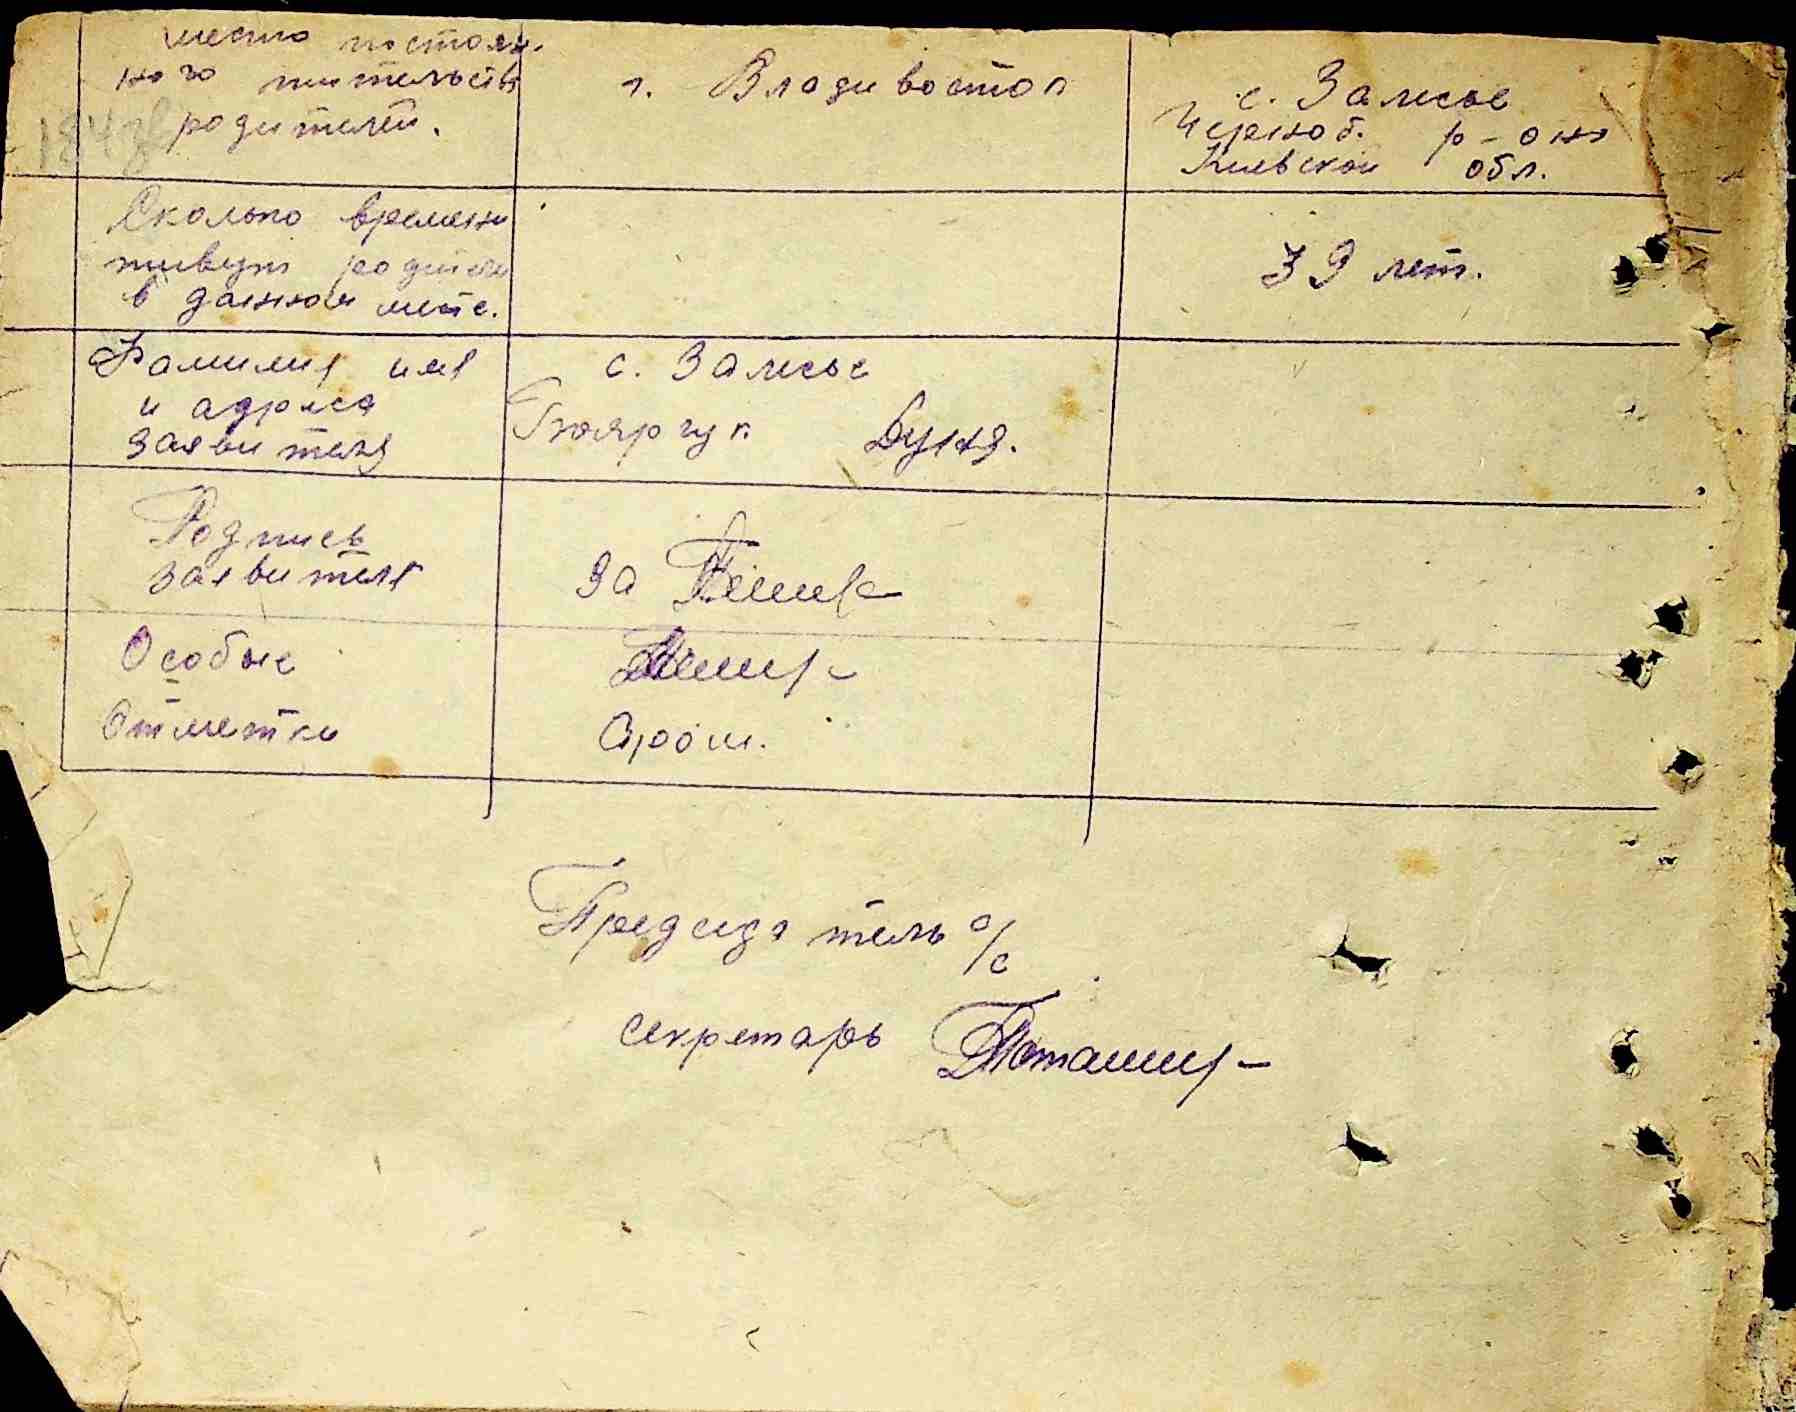 место постоян-
ного жительств
родителей.
г. Владивосток
с. Залесье
Черноб. р-она
Киевской обл.
Сколько времени
живут родители
в данном месте.
39 лет.
Фамилия имя
и адреса
заявителя
с. Залесье
Дуня.
Подпись
заявителя
за
Особые
Отметки
Председатель с/с
секретарь